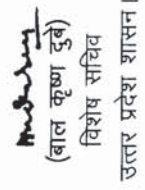 (बाल कृष्ण दुबे)
विशेष सचिव
उत्तर प्रदेश शासन।